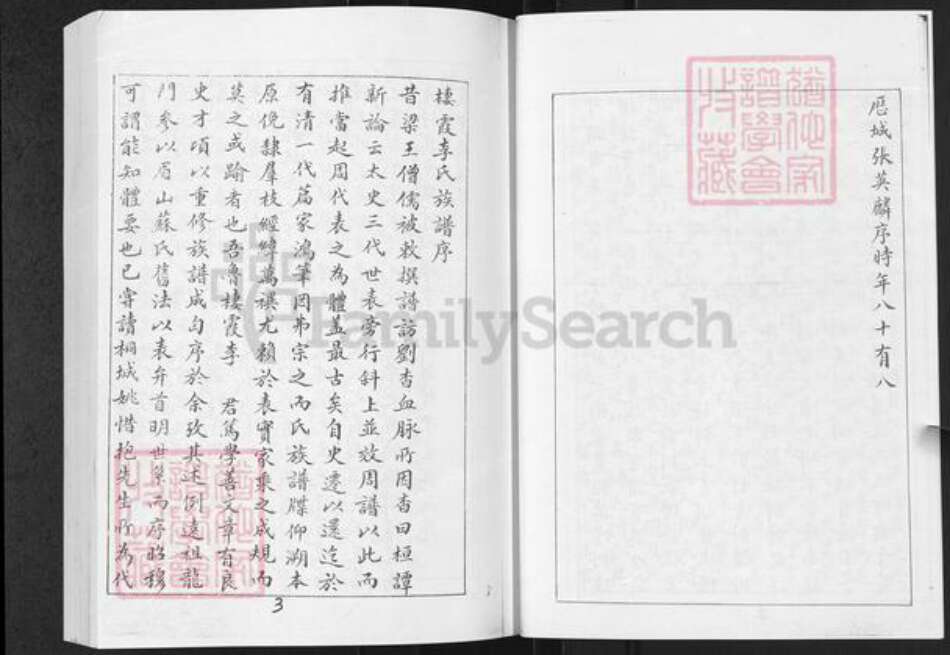 歷城張英麟序時年八十有八
棲霞李氏族譜序
昔梁王僧儒被敕撰譜訪劉杳血脉所因杳曰桓譚
新論云太史三代世表旁行斜上並效周譜以此而
推當起周代表之為體盖最古矣自史遷以還迄於
有清一代篇家鴻筆罔弗宗之而氏族譜牒仰溯本
原俛隸羣枝經緯萬禩尤賴於表實家乘之成規而
莫之或踰者也吾魯棲霞李 君篤學善文章有良
史才項以重修族譜成匄序於余攷其述例遠祖龍
門參以眉山蘇氏舊法以表弁首明世系而序昭穆
可謂能知體要也已甞讀桐城姚惜抱先生所為代
3
FamilySearch